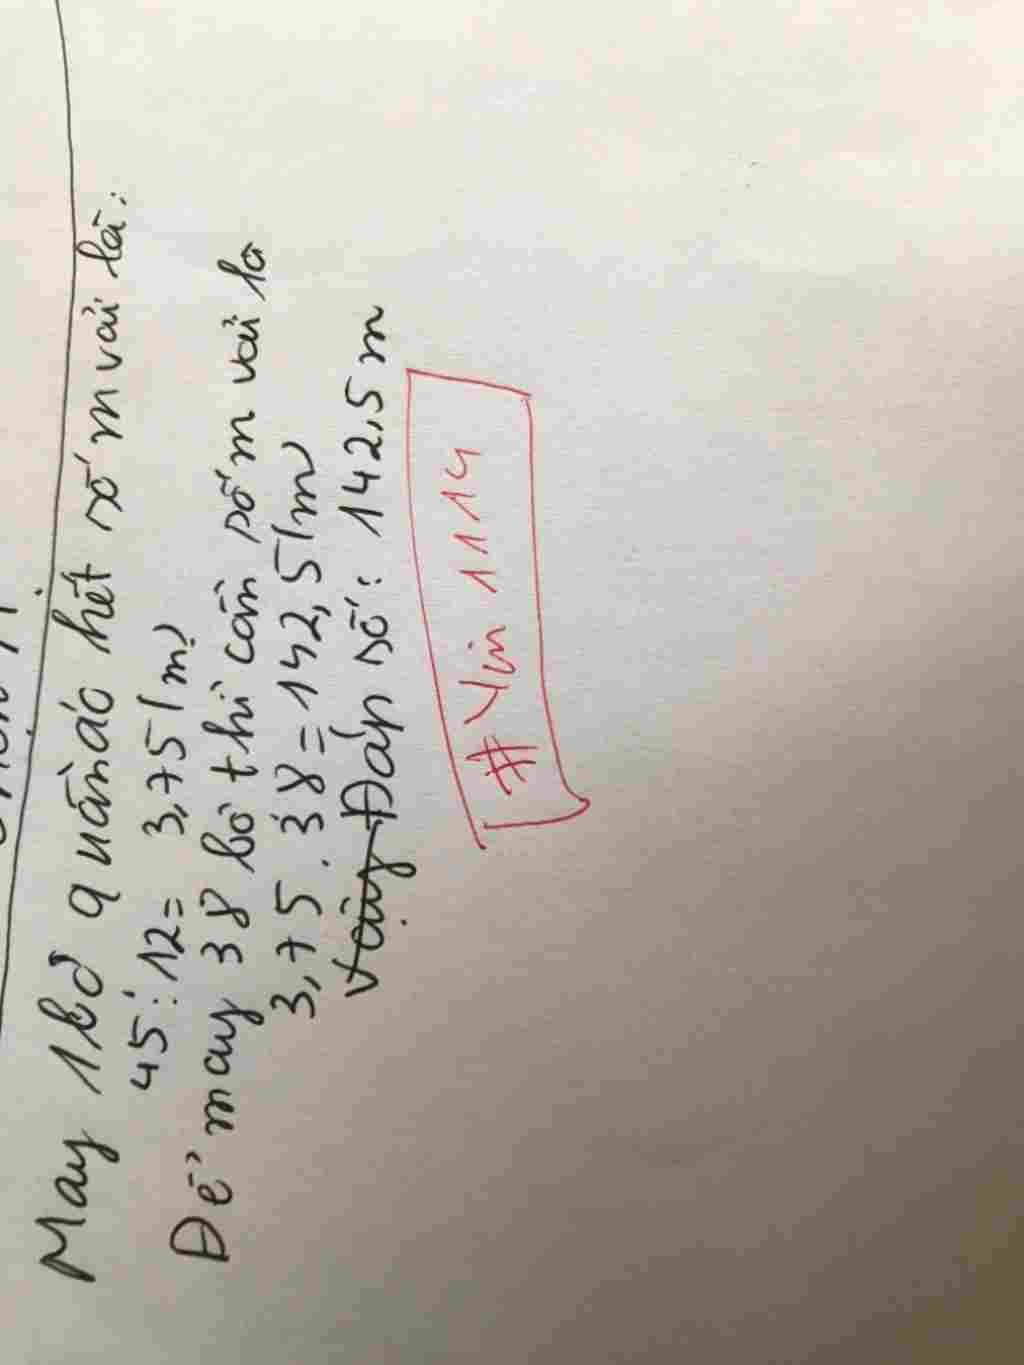 May 1 bộ quần áo hết số m vải là:
45:12= 3,75(m)
Để may 38 bộ thì cần số m vải là
3,75.38=142,5(m)
Vậy Đáp số: 142,5m
#Yin1114